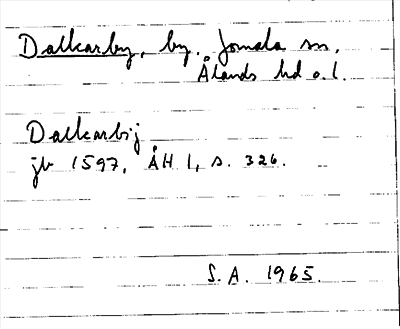 Dalkarby, by. Jomala sn,
Ålands hd o. l.
Dalkarbij
jb 1597, ÅH 1, s. 326.
S. A. 1965.